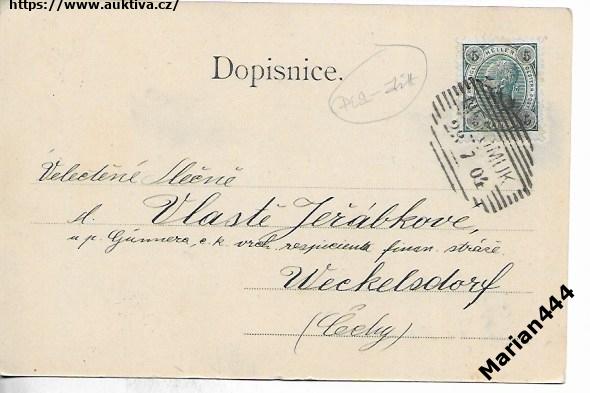 https://www.auktiva.cz/
Dopisnice.
5 HELLER 5
Velectěné slečně
sl. Vlastě Jeřábkove,
u p. Günnera, c. k. vrch. respicienta finan. stráže
Weckelsdorf
(Čechy)
NEPOMUK
29 7 04
Marian444